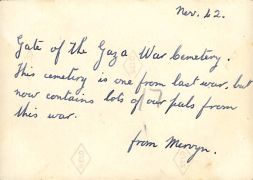 Nov. 42.
Gate of the Gaza War Cemetery.
This cemetery is one from last war, but
now contains lots of our pals from
this war.
from Mervyn.